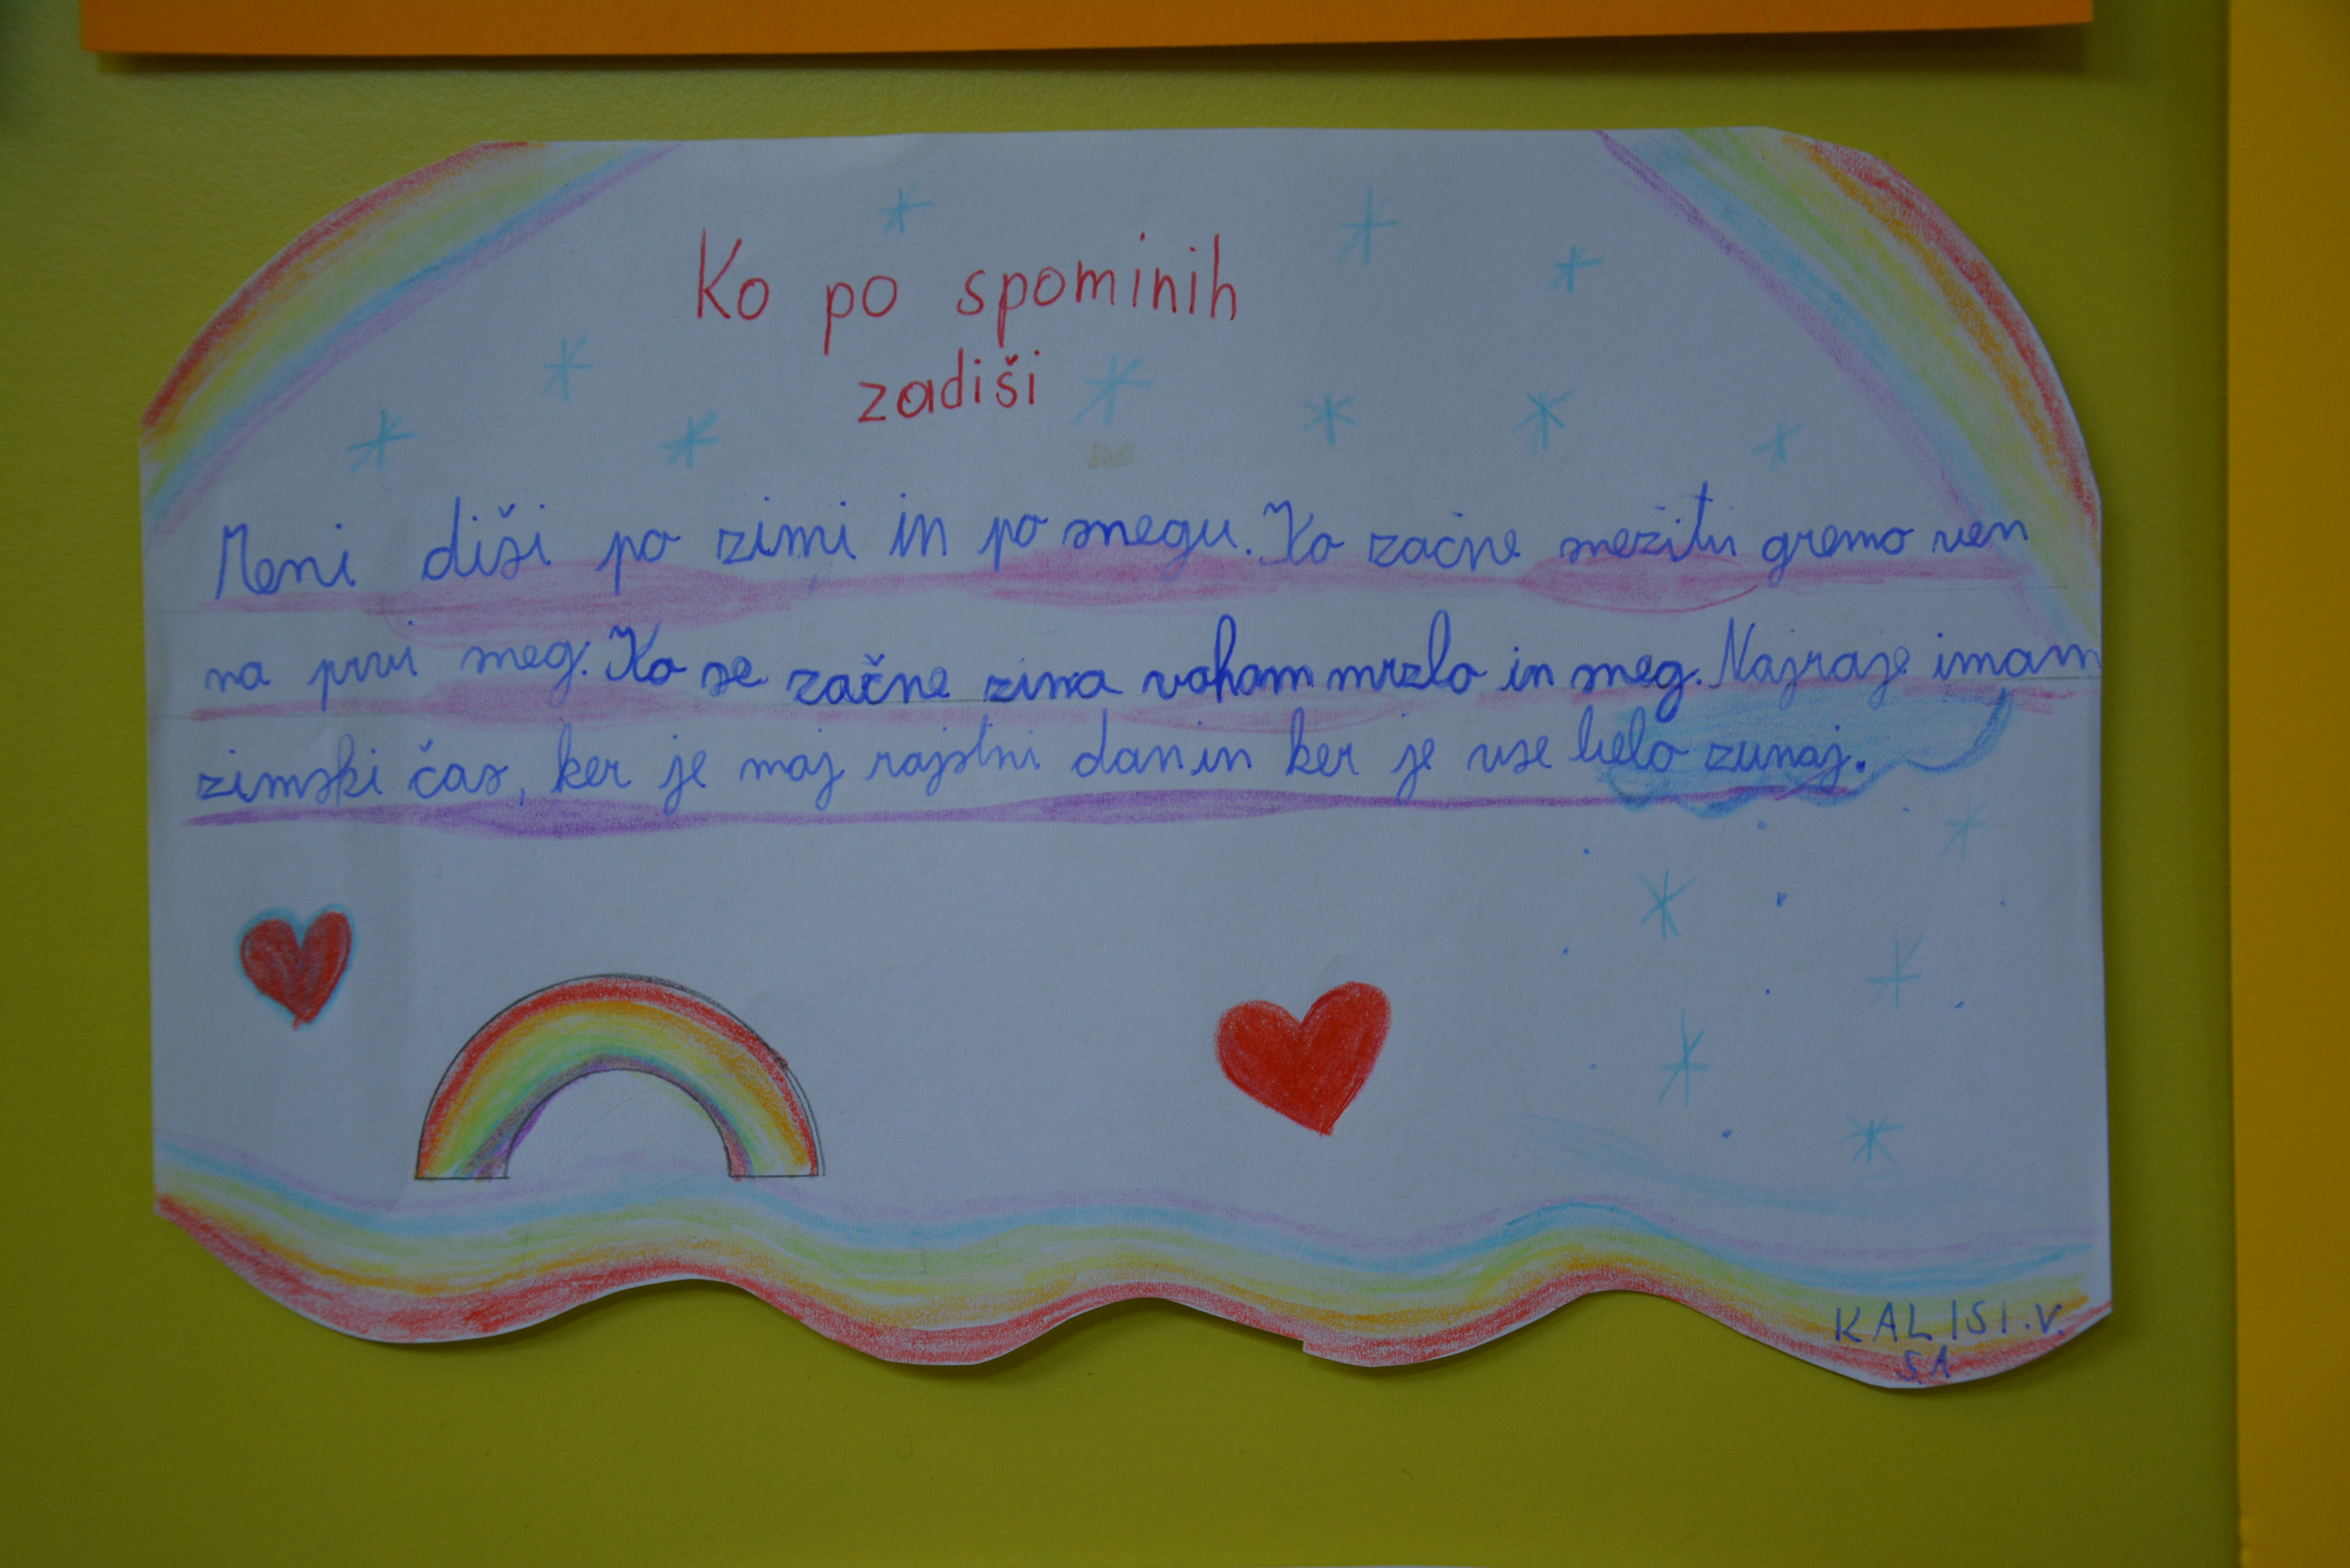 Ko po spominih
zadiši
Meni diši po zimi in po snegu. Ko začne snežiti gremo ven
na prvi sneg. Ko se začne zima voham mrzlo in sneg. Najraje imam
zimski čas, ker je moj rojstni dan in ker je vse belo zunaj.
KALISI.V.
5.A